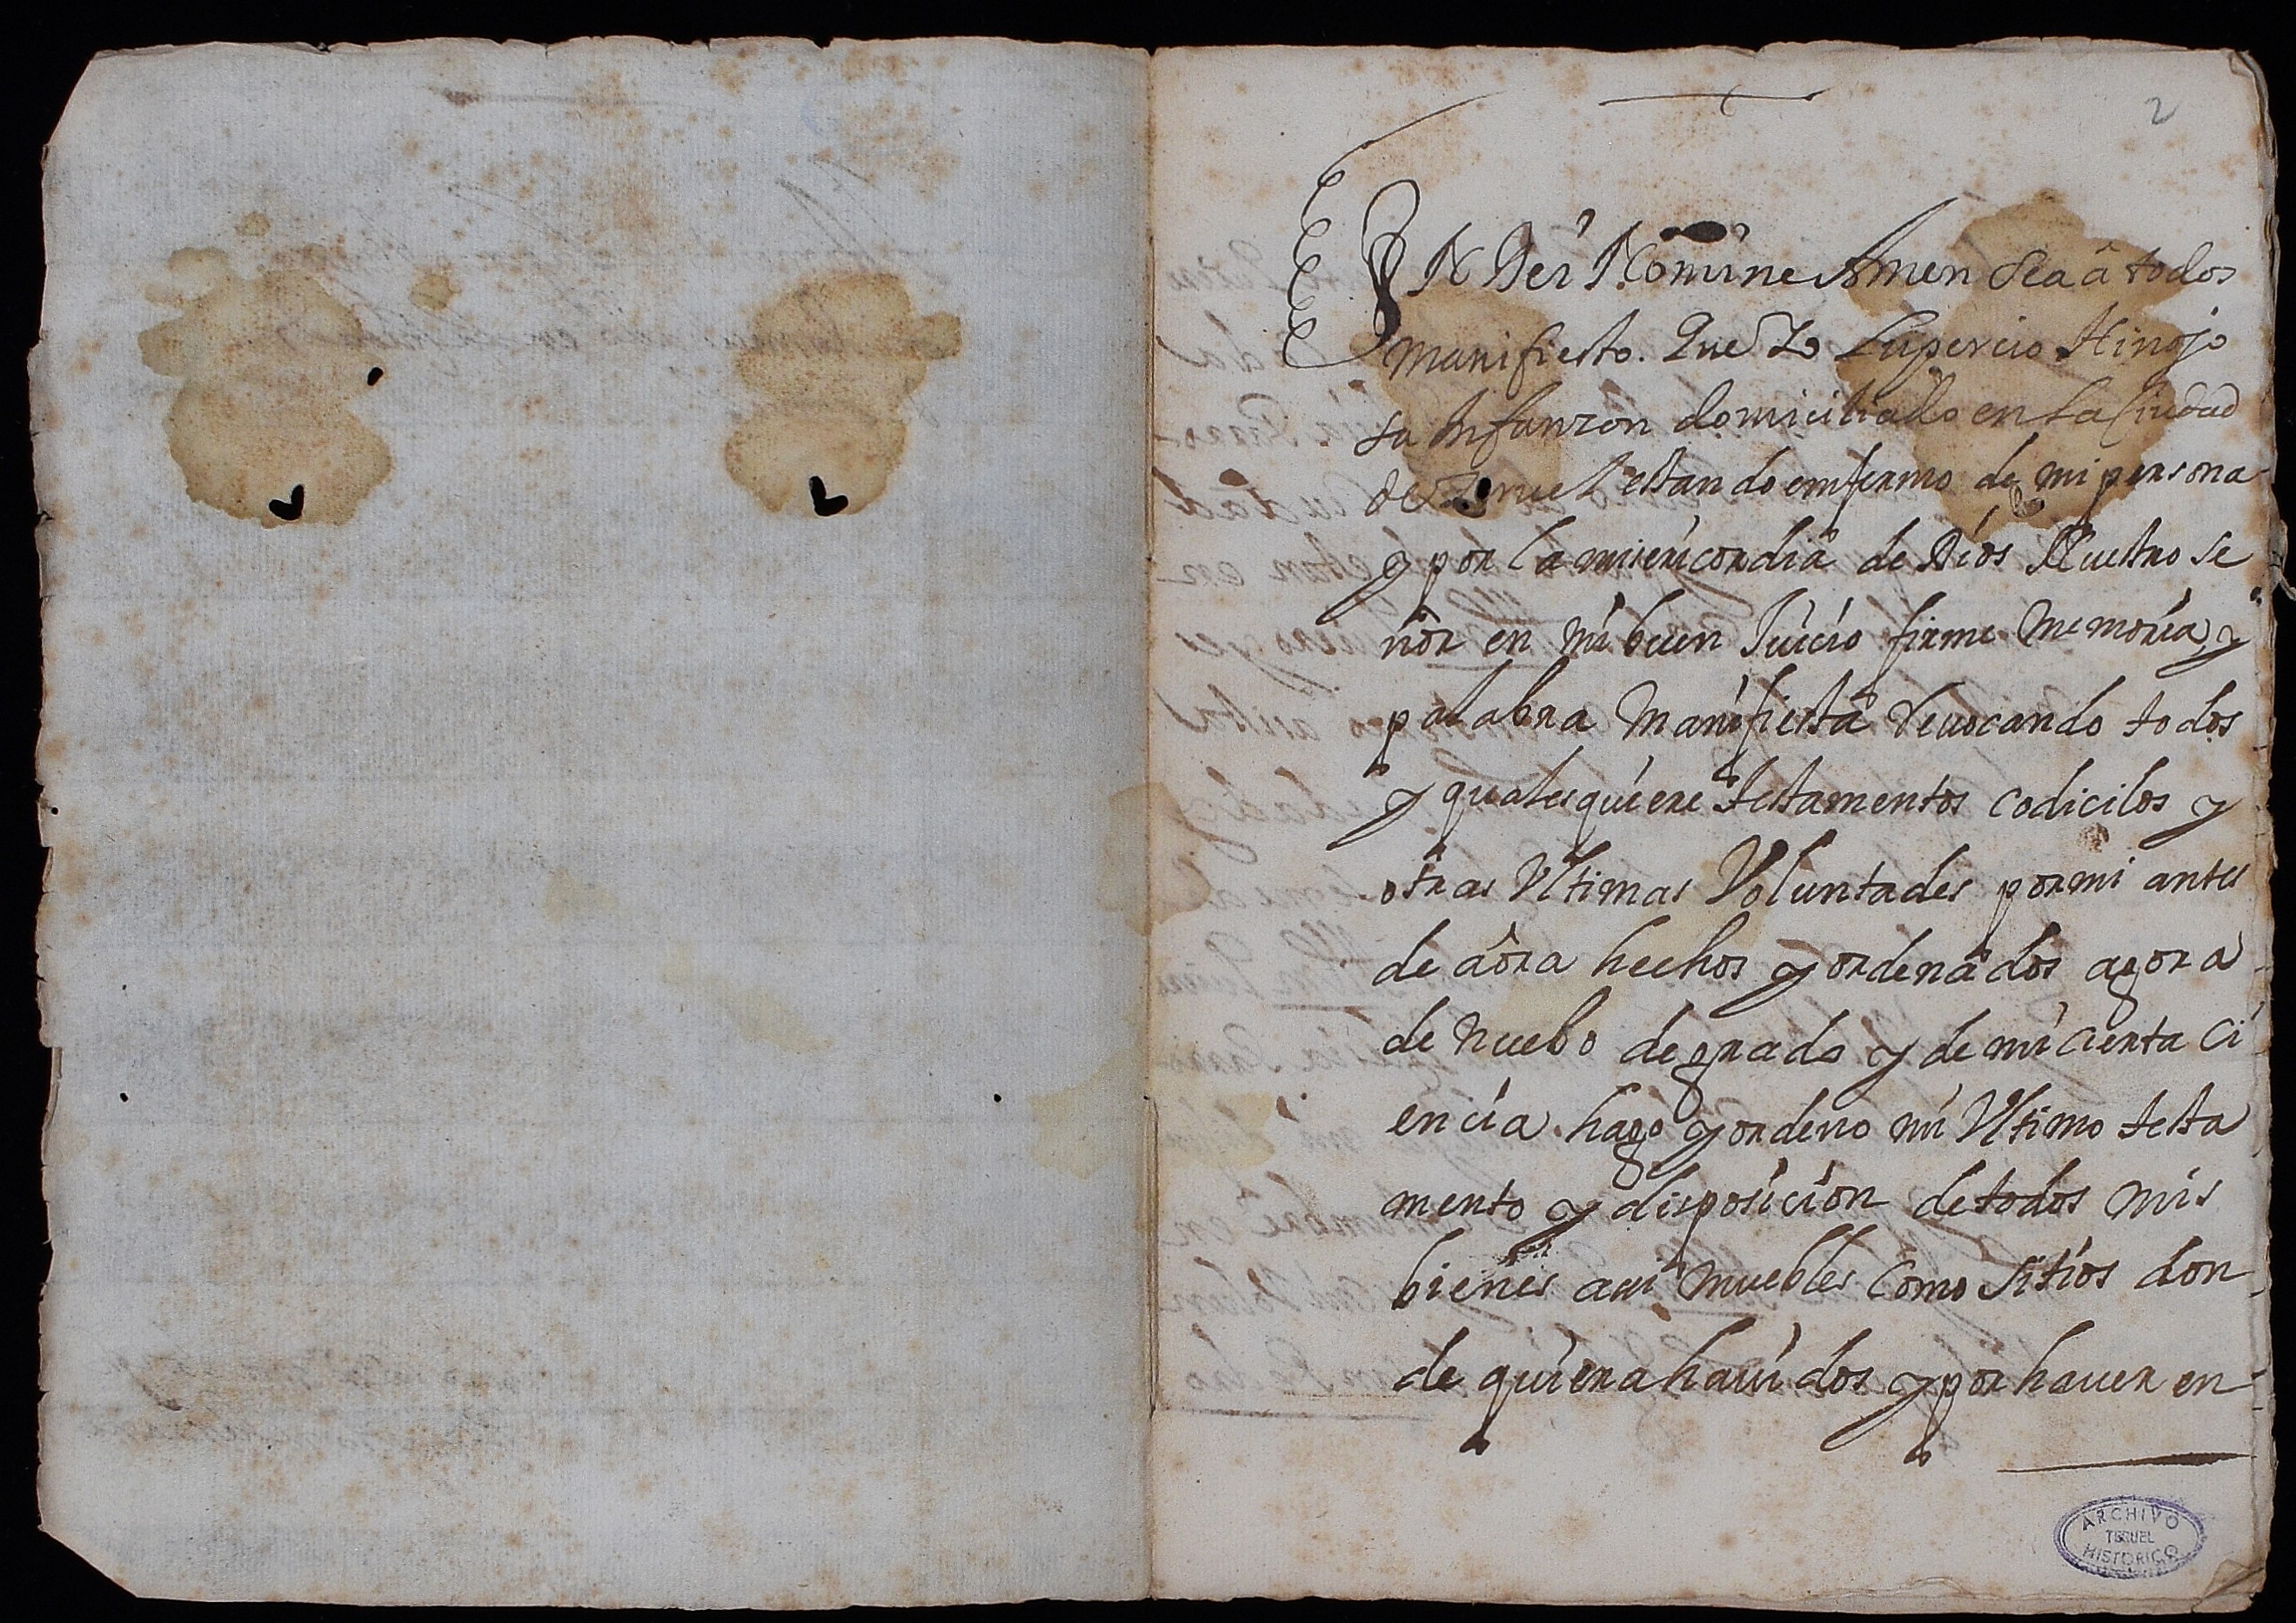 2
IN Dei Nomine Amen Sea â todos
manifiesto. Que Yo Lupercio Hinojo
sa Infanzon domiciliado en la Ciudad
de Teruel estando emfermo de mi persona
y por la misericordia de Dios Nuestro Se
ñor en mi buen Juicio firme memoria, y
palabra manifiesta revocando todos
y qualesquiere testamentos codicilos y
otras Ultimas Voluntades por mi antes
de âora hechos y ordenados agora
de nuebo de grado y de mi cierta Ci
encia. hago y ordeno mi Ultimo testa
mento y disposicion de todos mis
bienes aui muebles como Sitios don
de quiera hauidos y por hauer en
ARCHIVO
TERUEL
HISTORICO